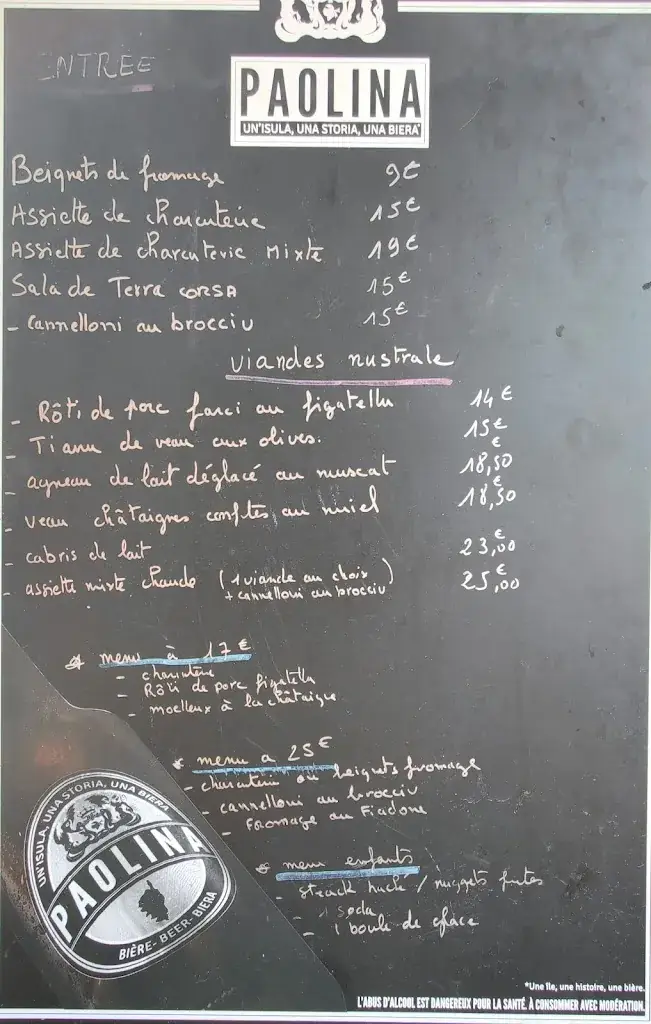 ENTREE
PAOLINA
UN'ISULA, UNA STORIA, UNA BIERA*
Beignets de fromage 9€
Assiette de charcuterie 15€
Assiette de charcuterie Mixte 19€
Salade Terra CORSA 15€
- Cannelloni au brocciu 15€
viandes nustrale
- Rôti de porc farci au figatellu 14€
- Tianu de veau aux olives. 15€
- agneau de lait déglacé au muscat 18,50€
- veau châtaignes confites au miel 18,50€
- cabris de lait 23,00€
- assiette mixte chaude (1 viande au choix + cannelloni au brocciu) 25,00€
* menu à 17€
- charcuterie
- Rôti de porc figatellu
- moelleux à la châtaigne
* menu a 25€
- charcuterie ou beignets fromage
- cannelloni au brocciu
- Fromage ou Fiadone
* menu enfants
- steack haché / nuggets frites
- 1 soda
- 1 boule de glace
UN'ISULA, UNA STORIA, UNA BIERA
PAOLINA
BIÈRE - BEER - BIERA
*Une île, une histoire, une bière.
L'ABUS D'ALCOOL EST DANGEREUX POUR LA SANTÉ. À CONSOMMER AVEC MODÉRATION.